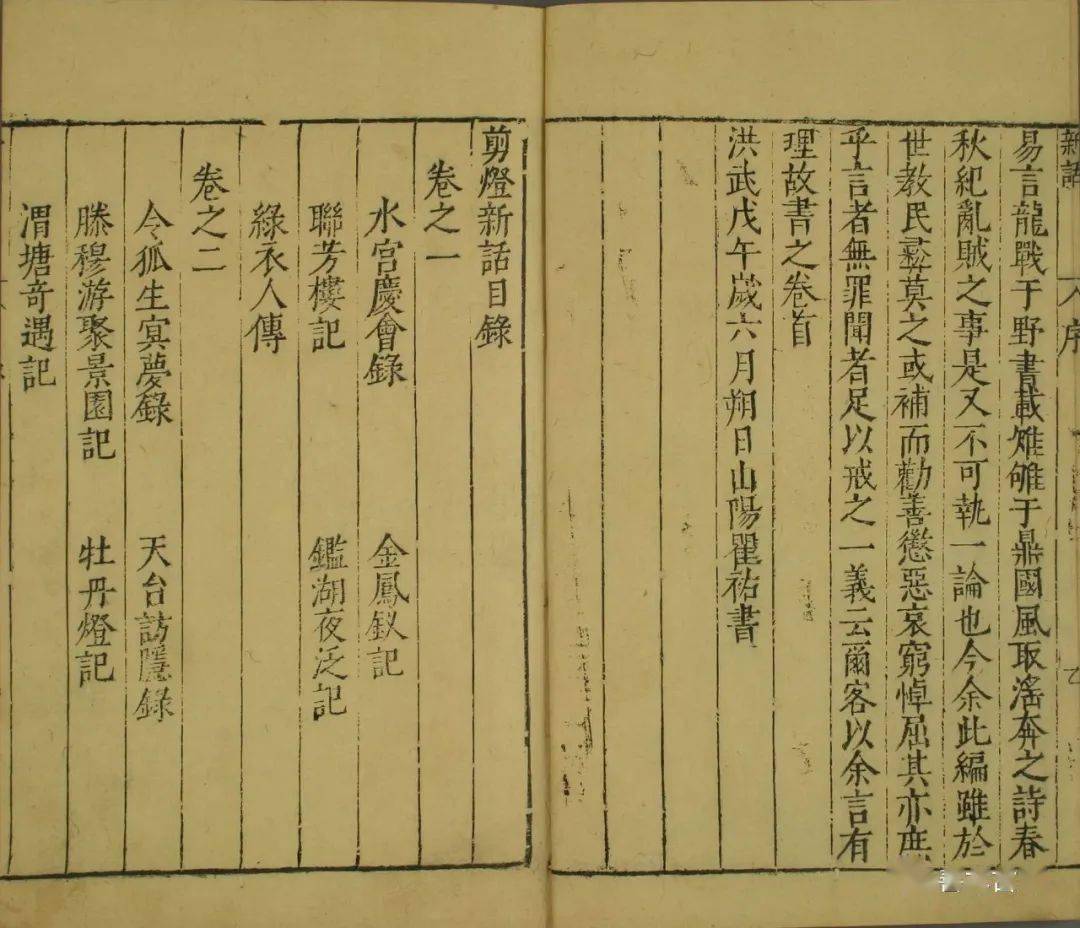 新話 序
易言龍戰于野書載雉雊于鼎國風取滛奔之詩春
秋紀亂賊之事是又不可執一論也今余此編雖於
世教民彝莫之或補而勸善懲惡哀窮悼屈其亦庶
乎言者無罪聞者足以戒之一義云爾客以余言有
理故書之卷首
洪武戊午歲六月朔日山陽瞿祐書
剪燈新話目錄
卷之一
水宮慶會錄 金鳳釵記
聯芳樓記 鑑湖夜泛記
綠衣人傳
卷之二
令狐生㝠夢錄 天台訪隱錄
滕穆游聚景園記 牡丹燈記
渭塘奇遇記